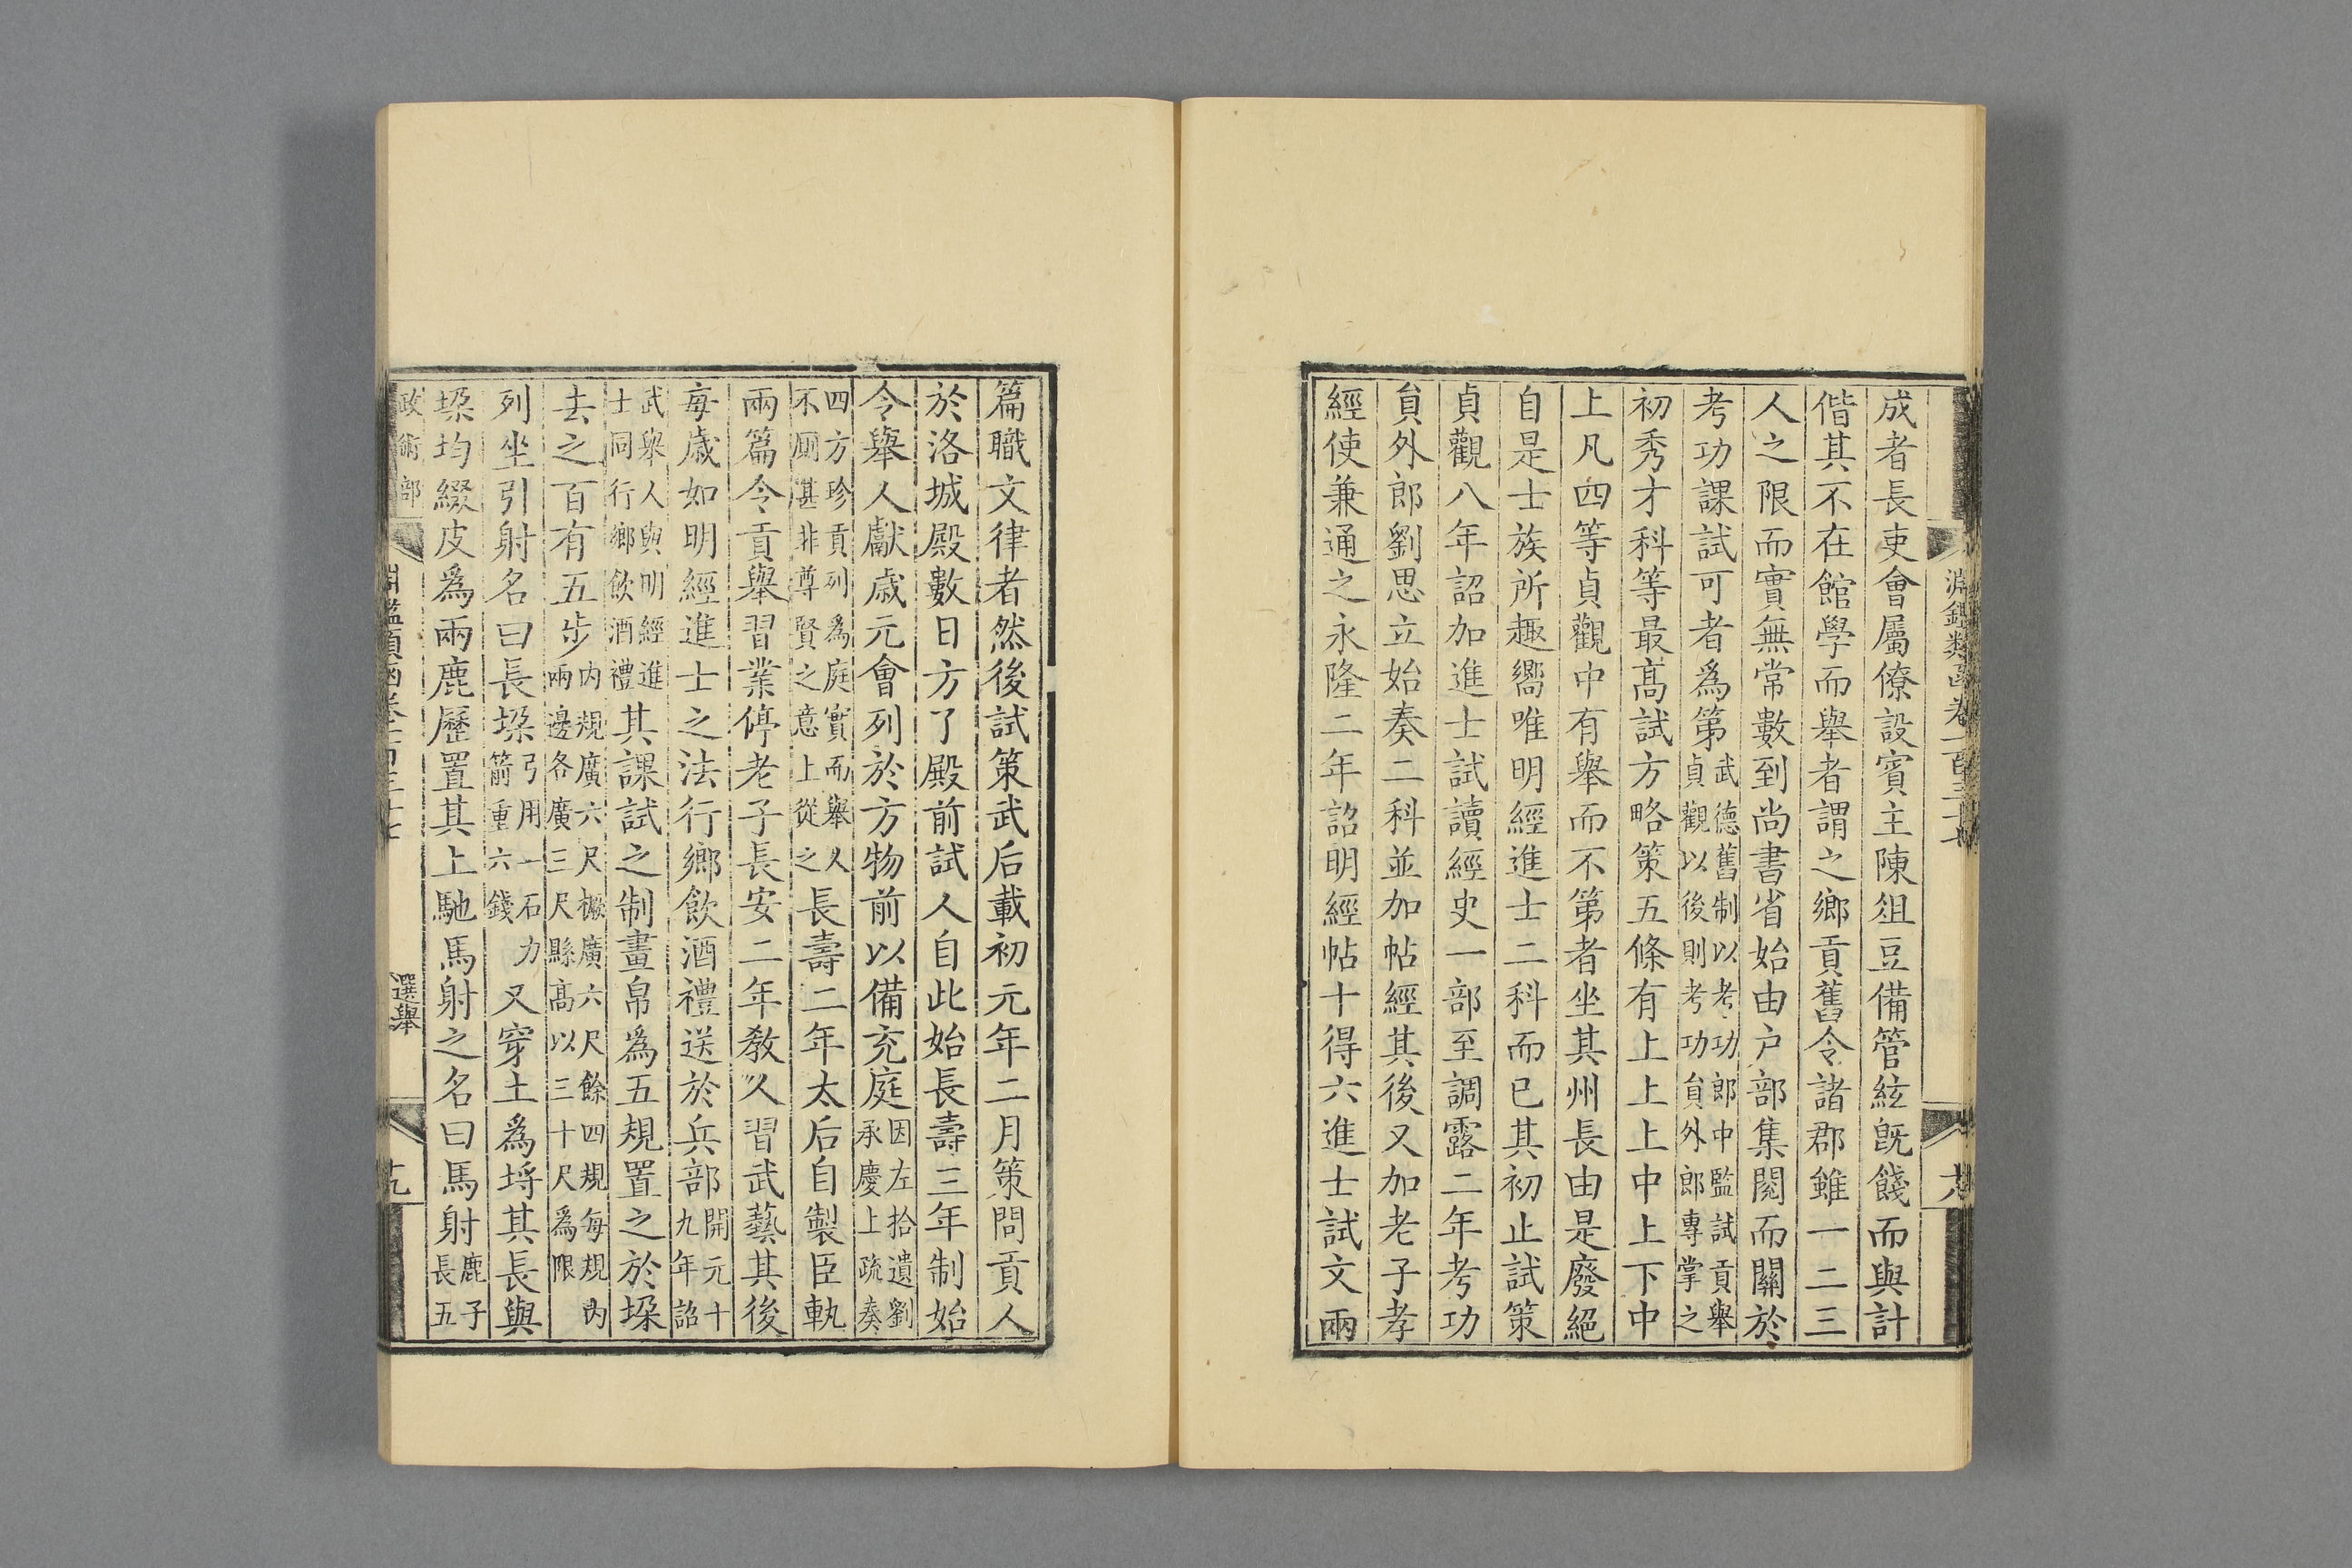 淵鑑類函卷一百三十七
成者長吏會屬僚設賓主陳俎豆備管絃旣餞而與計
偕其不在館學而舉者謂之鄉貢舊令諸郡雖一二三
人之限而實無常數到尚書省始由户部集閱而關於
考功課試可者爲第武德舊制以考功郎中監試貢舉貞觀以後則考功貟外郎專掌之
初秀才科等最髙試方略策五條有上上上中上下中
上凡四等貞觀中有舉而不第者坐其州長由是廢絕
自是士族所趣嚮唯明經進士二科而已其初止試策
貞觀八年詔加進士試讀經史一部至調露二年考功
貟外郎劉思立始奏二科並加帖經其後又加老子孝
經使兼通之永隆二年詔明經帖十得六進士試文兩
篇職文律者然後試策武后載初元年二月策問貢人
於洛城殿數日方了殿前試人自此始長壽三年制始
令舉人獻歲元會列於方物前以備充庭因左拾遺劉承慶上疏奏
四方珍貢列爲庭實而舉人不厠甚非尊賢之意上從之長壽二年太后自製臣軌
兩篇令貢舉習業停老子長安二年教人習武藝其後
每歲如明經進士之法行鄉飲酒禮送於兵部開元十九年詔
武舉人與明經進士同行鄉飲酒禮其課試之制畫帛爲五規置之於垜
去之百有五步内規廣六尺橛廣六尺餘四規每規内兩邊各廣三尺縣髙以三十尺爲限
列坐引射名曰長垜弓用一石力箭重六錢又穿土爲埒其長與
垜均綴皮爲兩鹿歷置其上馳馬射之名曰馬射鹿子長五
政術部
選舉